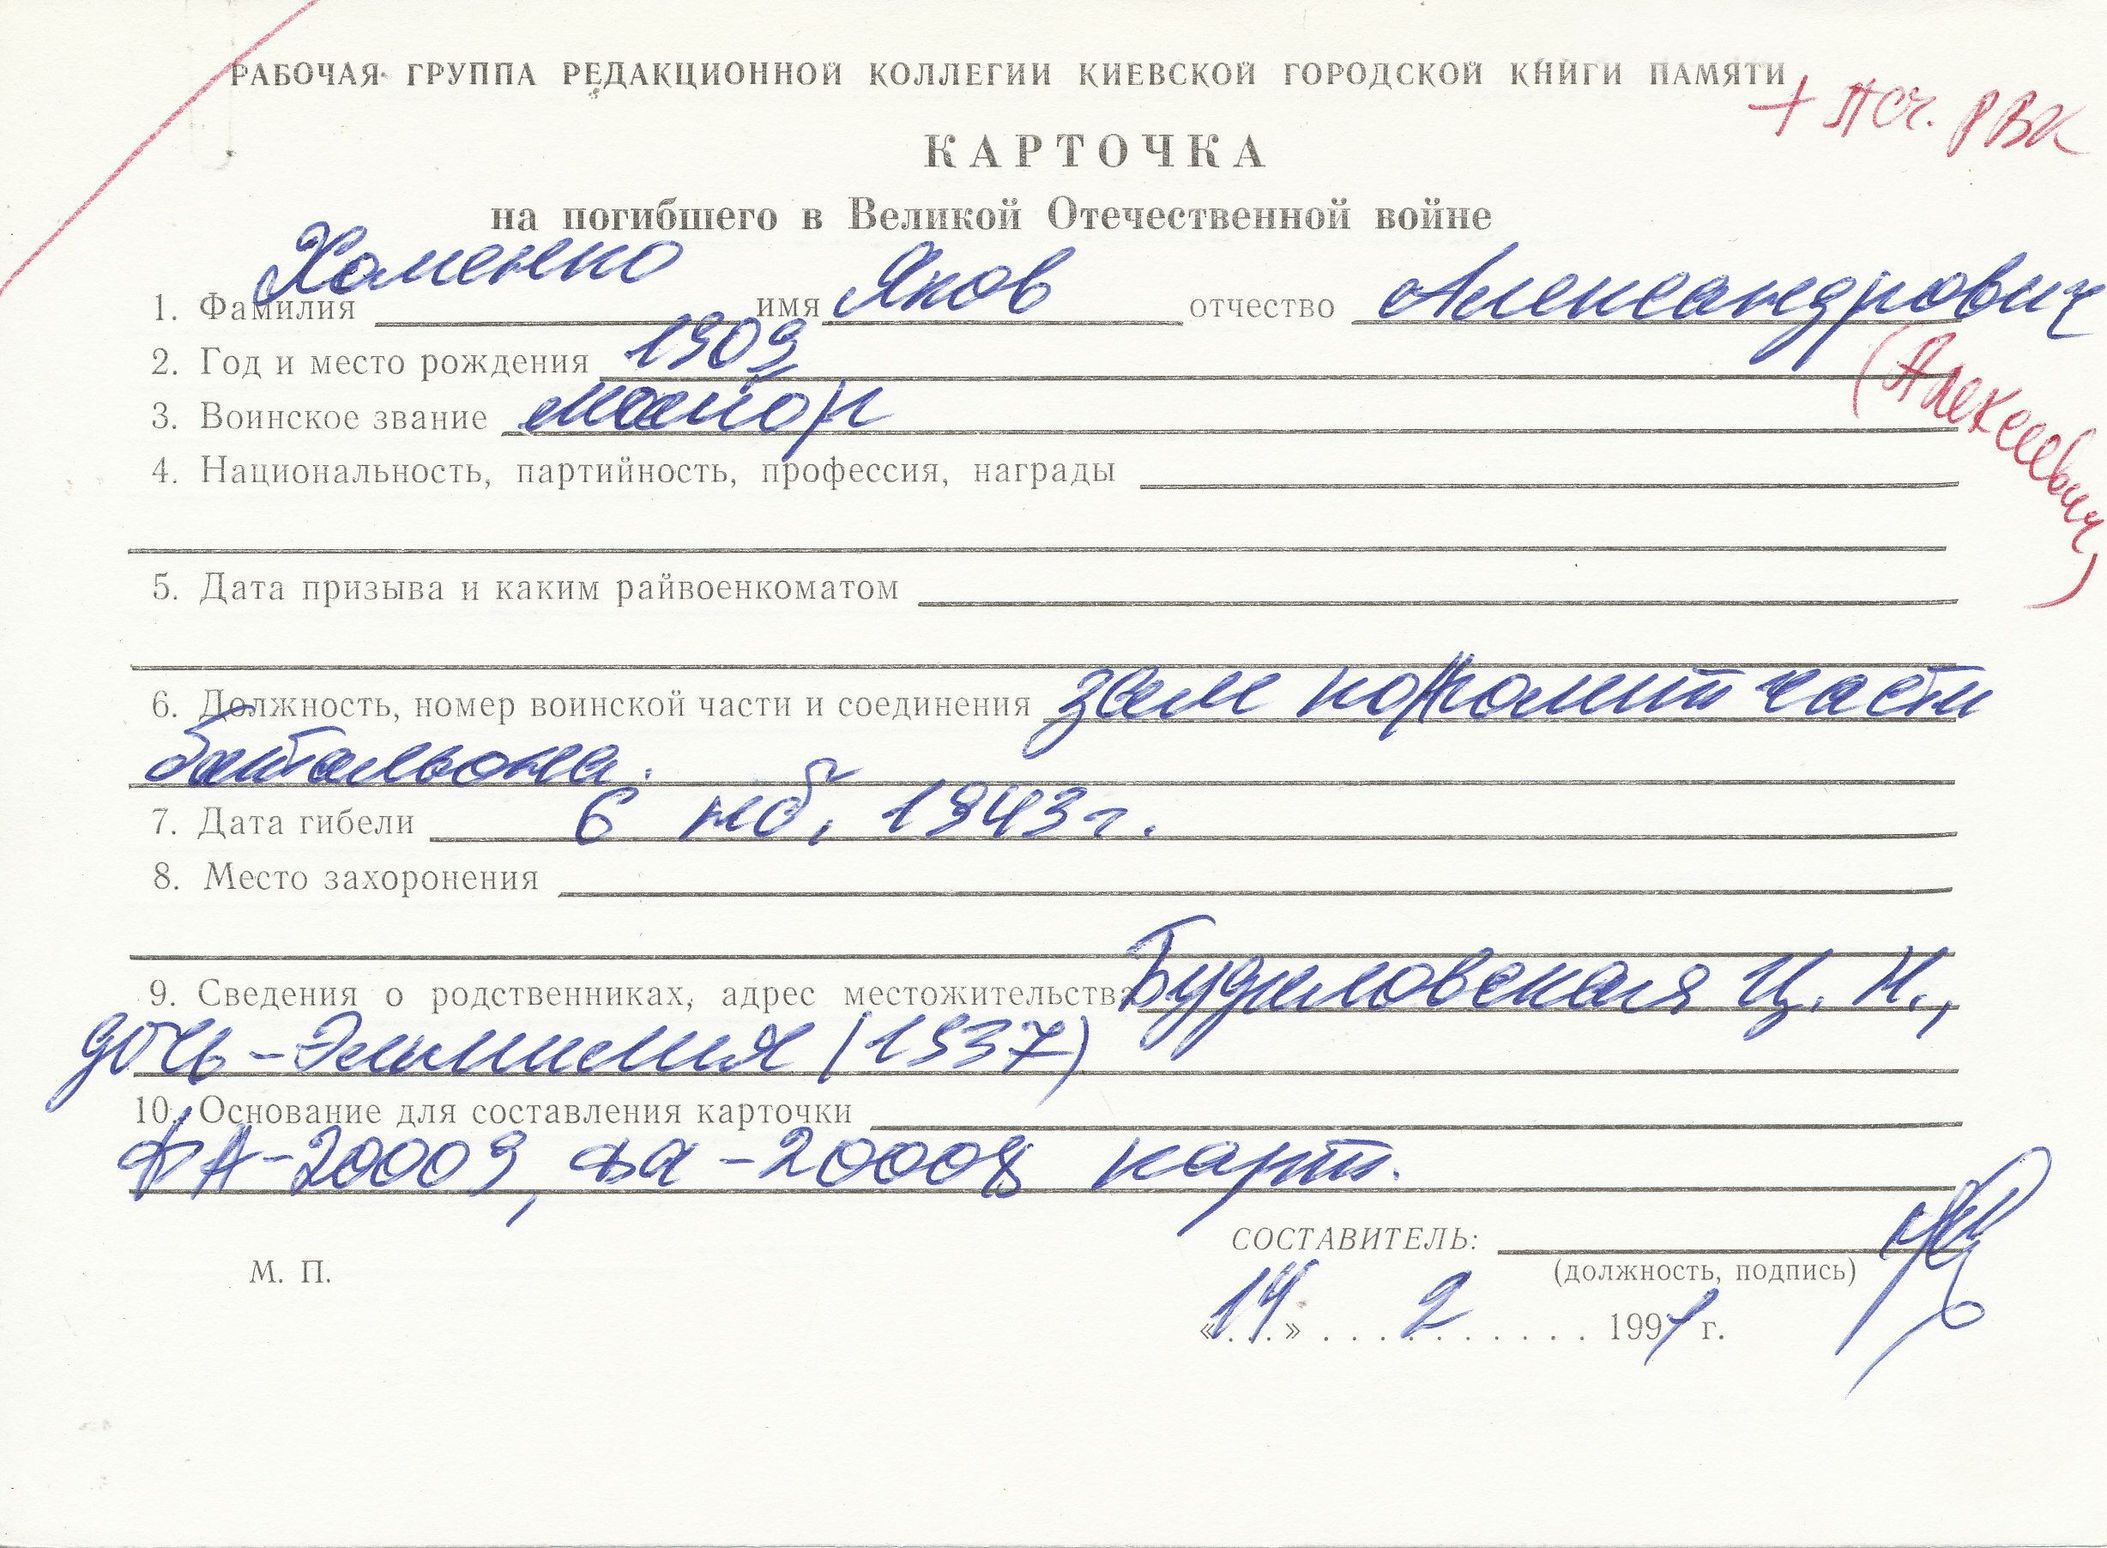 РАБОЧАЯ ГРУППА РЕДАКЦИОННОЙ КОЛЛЕГИИ КИЕВСКОЙ ГОРОДСКОЙ КНИГИ ПАМЯТИ
+ Псч. РВК
КАРТОЧКА
на погибшего в Великой Отечественной войне
1. Фамилия Хоменко имя Яков отчество Александрович
(Алексеевич)
2. Год и место рождения 1909
3. Воинское звание майор
4. Национальность, партийность, профессия, награды
5. Дата призыва и каким райвоенкоматом
6. Должность, номер воинской части и соединения зам по политчасти
батальона.
7. Дата гибели 6 1943 г.
8. Место захоронения
9. Сведения о родственниках, адрес местожительства Будиловская Ц. Н.,
дочь - (1937)
10. Основание для составления карточки
ФА-20009, ФА-20008 карт.
СОСТАВИТЕЛЬ:
М. П.
(должность, подпись)
«14» 2 1991 г.